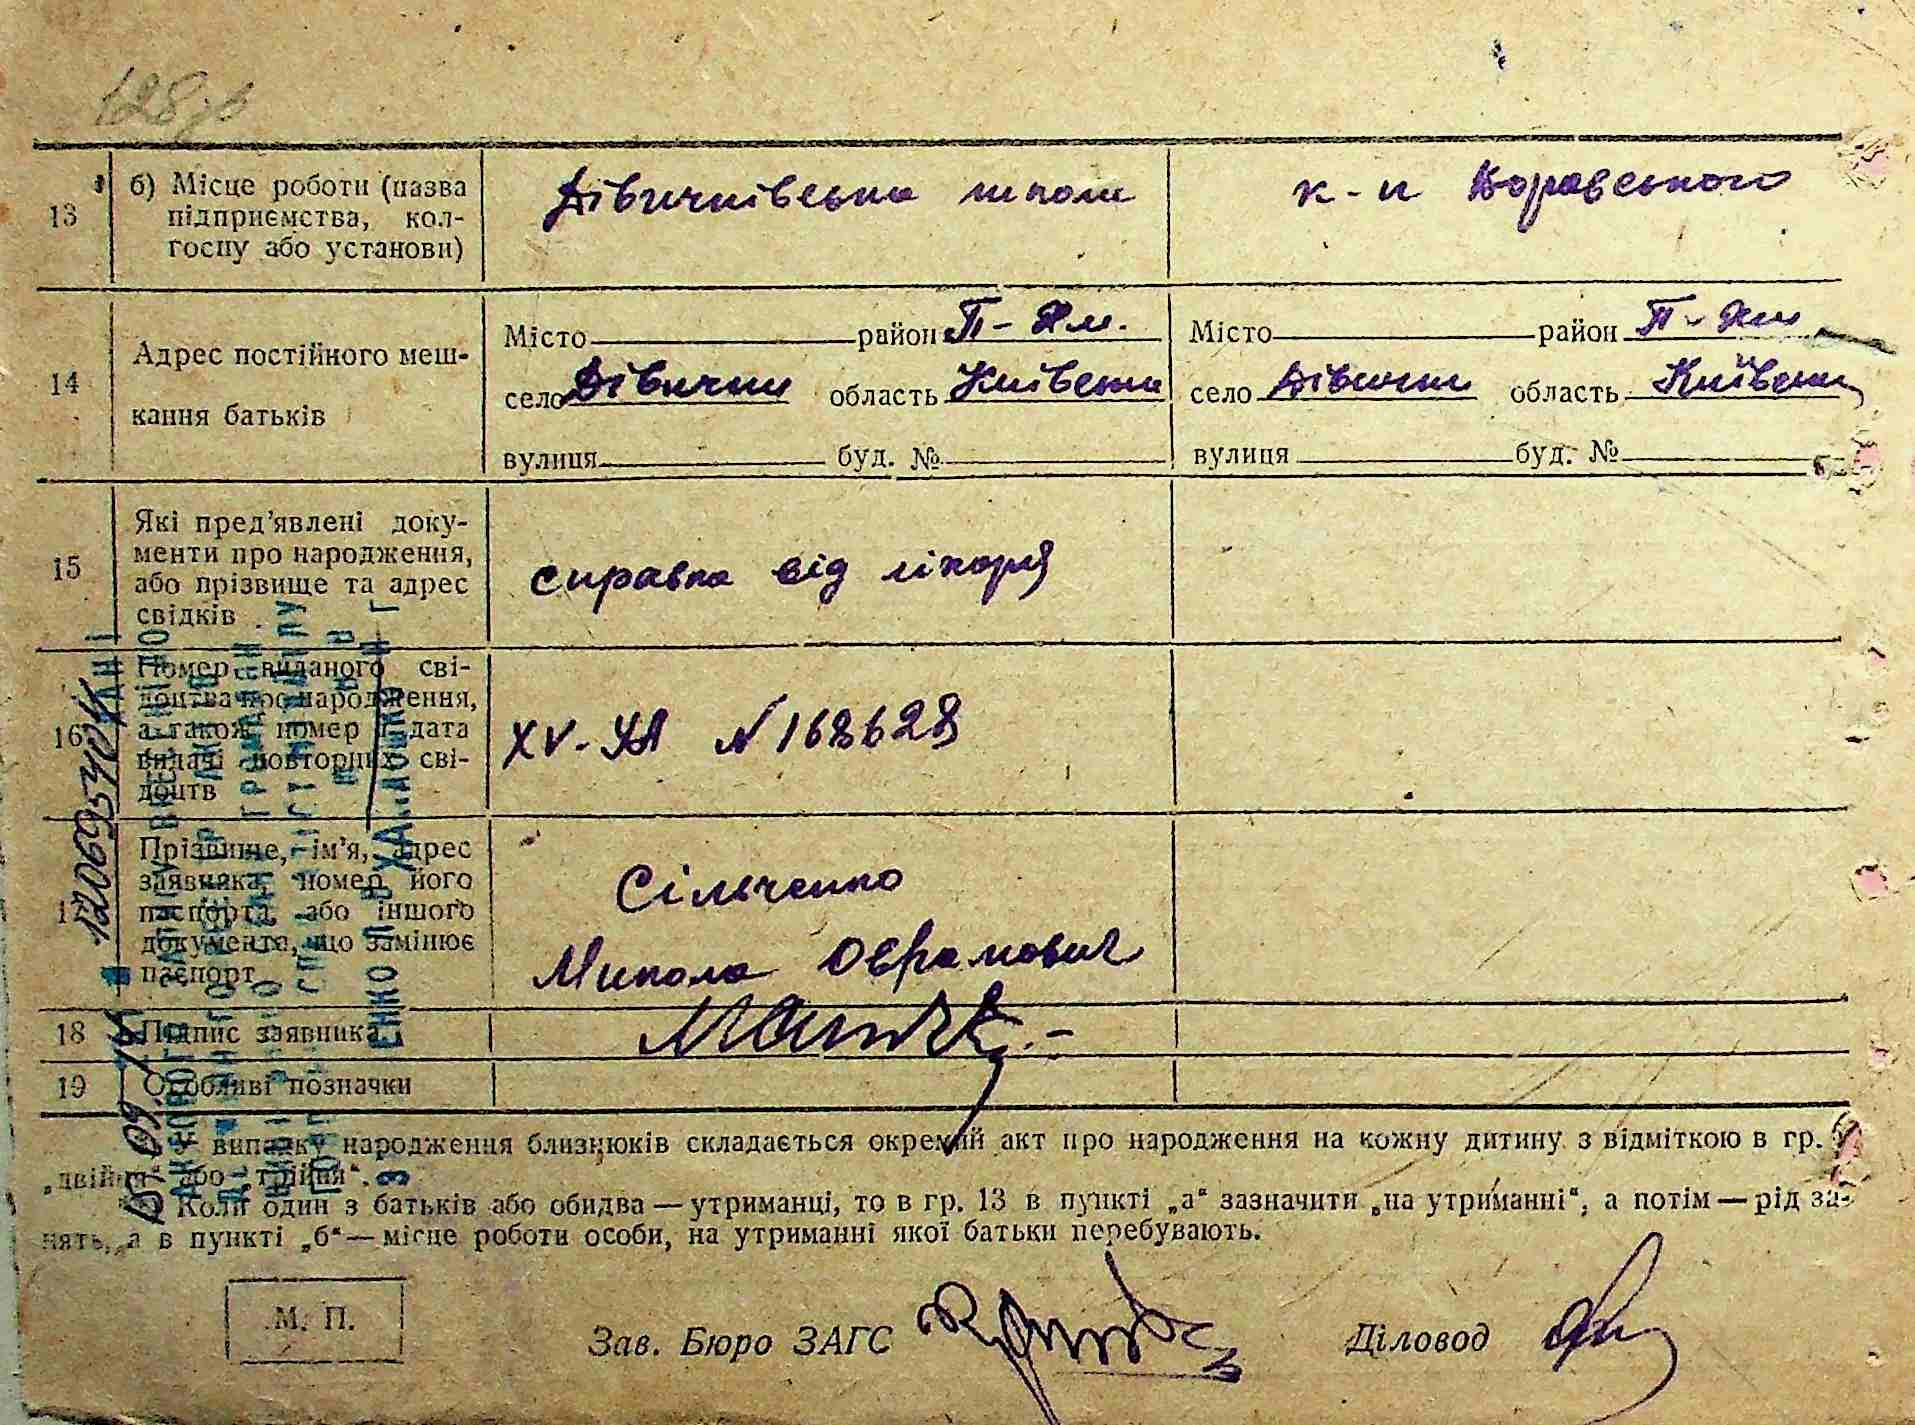 13 б) Місце роботи (назва підприємства, колгоспу або установи)
Дівичківська школа
к-п
14 Адрес постійного меш-
кання батьків
Місто район П-Хм.
село Дівички область Київська
вулиця буд. №
Місто район П-Хм
село Дівички область Київська
вулиця буд. №
15 Які пред'явлені доку-
менти про народження,
або прізвище та адрес
свідків
справка від лікаря
16 Номер виданого сві-
доцтва про народження,
а також номер і дата
видачі повторних сві-
доцтв
XV-УА № 168628
17 Прізвище, ім'я, адрес
заявника, номер його
паспорта або іншого
документа, що замінює
паспорт
Сільченко
Микола Оврамович
18 Підпис заявника
19 Особливі позначки
У випадку народження близнюків складається окремий акт про народження на кожну дитину з відміткою в гр.
„двійня“ або „трійня“.
Коли один з батьків або обидва — утриманці, то в гр. 13 в пункті „а“ зазначити „на утриманні“, а потім — рід за-
нять, а в пункті „б“ — місце роботи особи, на утриманні якої батьки перебувають.
М. П.
Зав. Бюро ЗАГС
Діловод